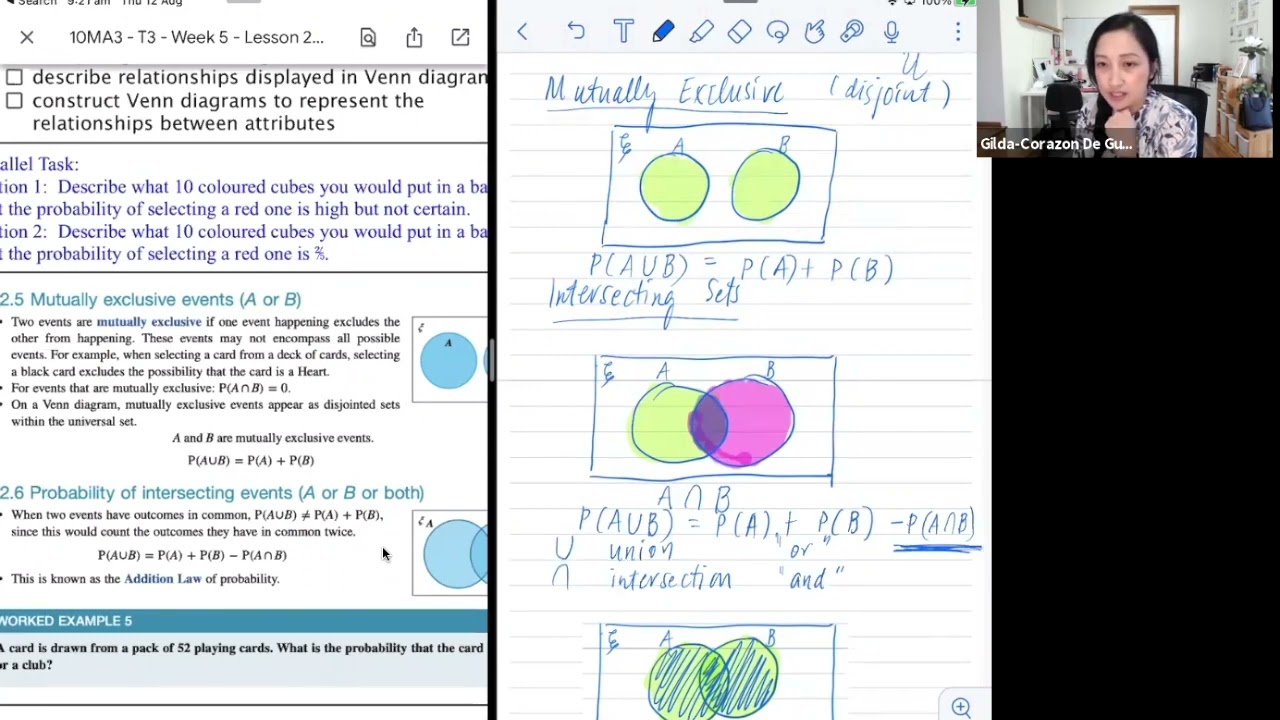 Search 9:21 am Thu 12 Aug
100%
10MA3 - T3 - Week 5 - Lesson 2...
describe relationships displayed in Venn diagran
construct Venn diagrams to represent the
relationships between attributes
allel Task:
tion 1: Describe what 10 coloured cubes you would put in a ba
t the probability of selecting a red one is high but not certain.
tion 2: Describe what 10 coloured cubes you would put in a ba
t the probability of selecting a red one is
2.5 Mutually exclusive events (A or B)
• Two events are mutually exclusive if one event happening excludes the
other from happening. These events may not encompass all possible
events. For example, when selecting a card from a deck of cards, selecting
a black card excludes the possibility that the card is a Heart.
• For events that are mutually exclusive: P(A∩B) = 0.
• On a Venn diagram, mutually exclusive events appear as disjointed sets
within the universal set.
A and B are mutually exclusive events.
P(A∪B) = P(A) + P(B)
ξ
A
2.6 Probability of intersecting events (A or B or both)
• When two events have outcomes in common, P(A∪B) ≠ P(A) + P(B),
since this would count the outcomes they have in common twice.
P(A∪B) = P(A) + P(B) − P(A∩B)
• This is known as the Addition Law of probability.
ξ A
WORKED EXAMPLE 5
A card is drawn from a pack of 52 playing cards. What is the probability that the card
or a club?
T
U
Mutually Exclusive (disjoint)
ξ A B
P(A∪B) = P(A) + P(B)
Intersecting Sets
ξ A B
A ∩ B
P(A∪B) = P(A) + P(B) − P(A∩B)
∪ union "or"
∩ intersection "and"
ξ A B
Gilda-Corazon De Gu...